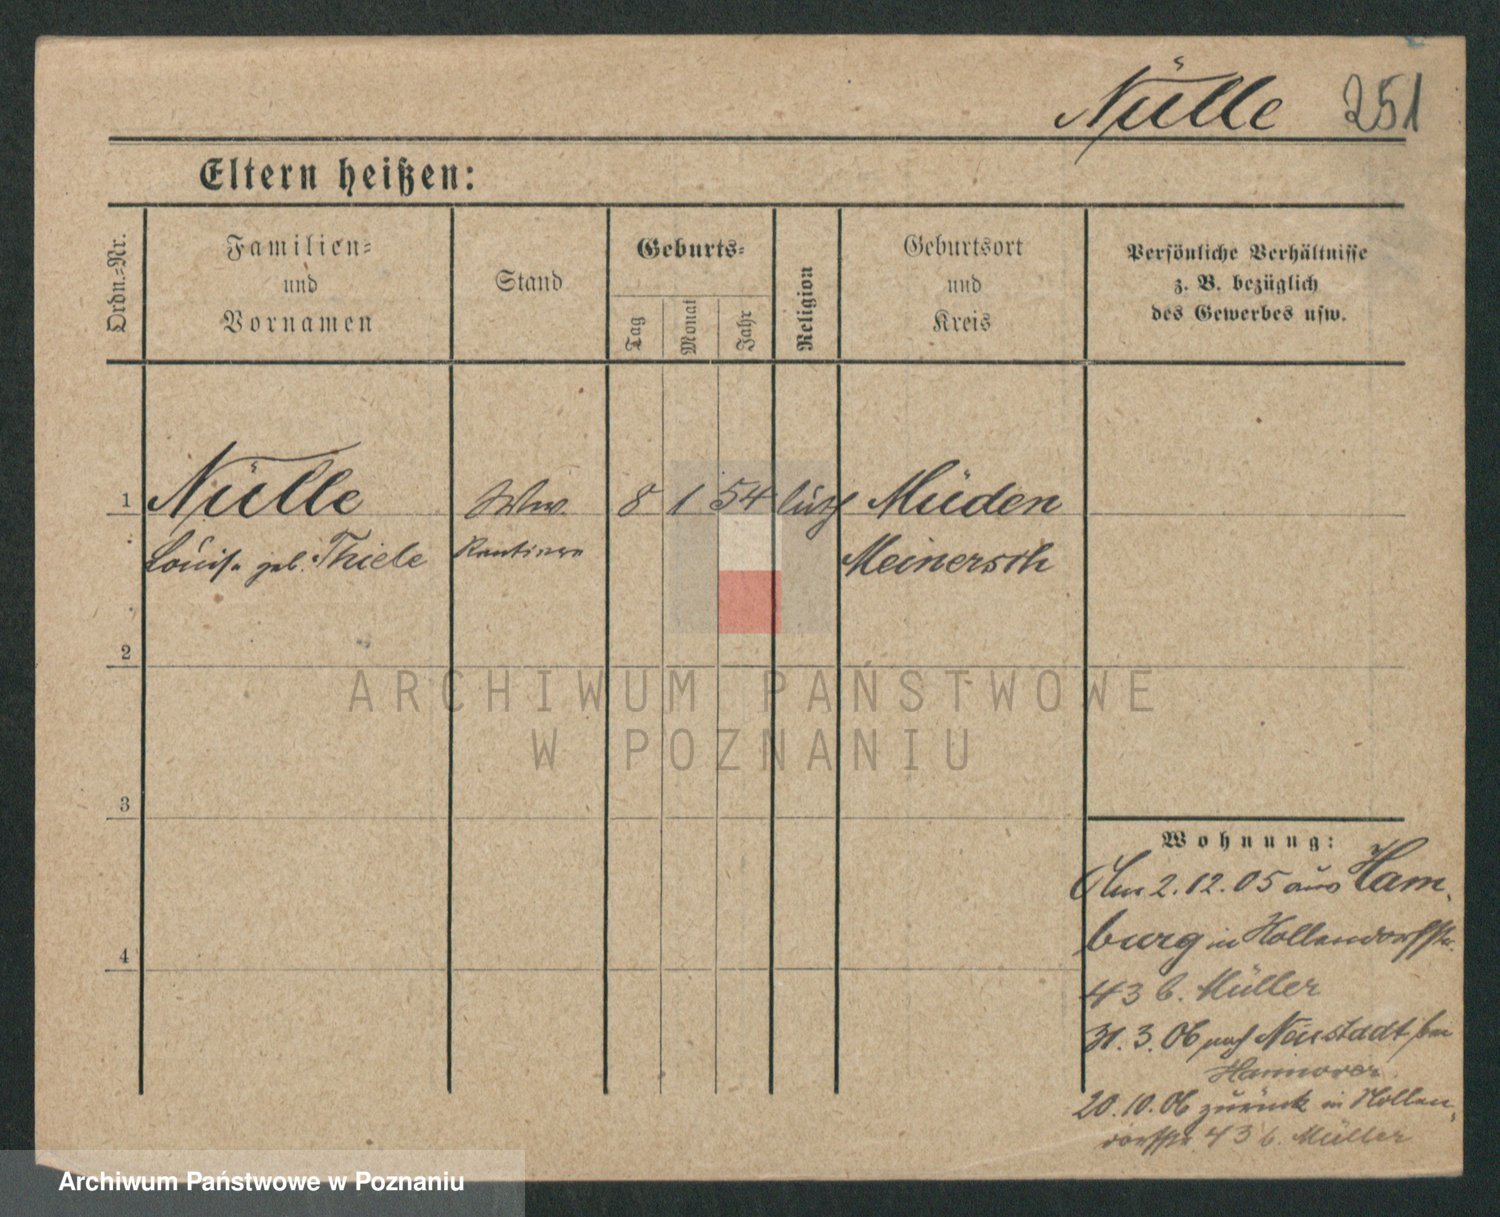 Nülle 251
Eltern heißen:
Ordn.-Nr.
Familien-
und
Vornamen
Stand
Geburts-
Tag
Monat
Jahr
Religion
Geburtsort
und
Kreis
Persönliche Verhältnisse
z. B. bezüglich
des Gewerbes usw.
1 Nülle Ww. 8 1 54 luth Müden
Louise geb. Thiele Rentiere Meinersch
2
ARCHIWUM PAŃSTWOWE
W POZNANIU
3
Wohnung:
Am 2.12.05 aus Ham-
burg in Hollendorffstr.
43 b. Müller
31.3.06 nach Neustadt
Hannover
20.10.06 zurück in Hollen-
dorffstr. 43 b. Müller
4
Archiwum Państwowe w Poznaniu